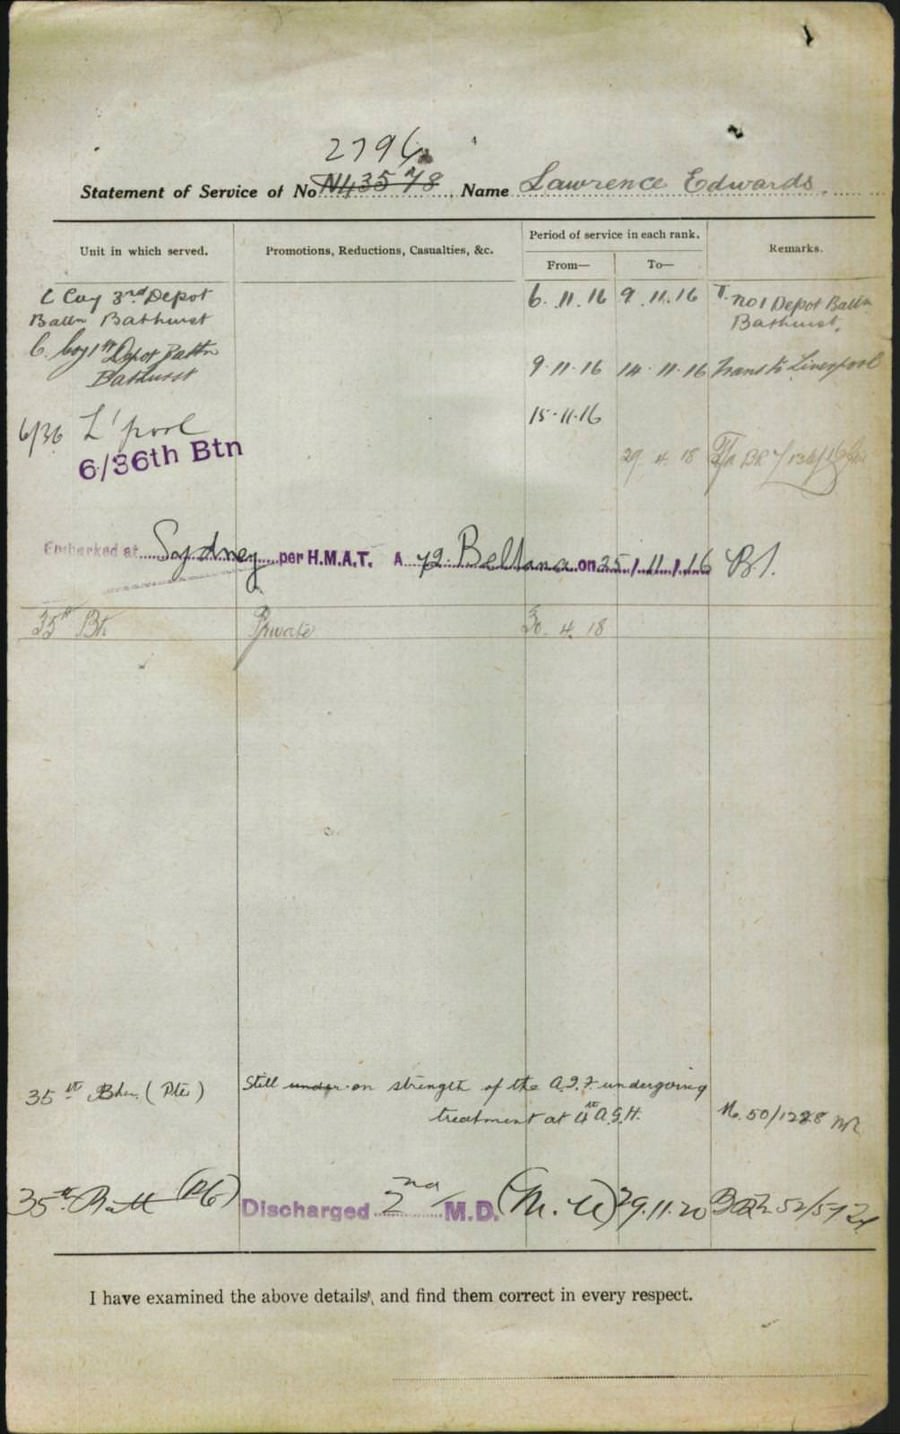 2796
Statement of Service of No. N43578 Name Lawrence Edwards.
Unit in which served.
Promotions, Reductions, Casualties, &c.
Period of service in each rank.
From—
To—
Remarks.
C Coy 3rd Depot
Battn Bathurst
6.11.16 9.11.16
T. No 1 Depot Battn
Bathurst.
C. Coy 1st Depot Battn
Bathurst
9.11.16 14.11.16 Trans to Liverpool
6/36 L'pool
15.11.16
6/36th Btn
29 4 18
Embarked at Sydney per H.M.A.T. A 72 Beltana on 25/11/16
35th Bn Private 30. 4. 18
35th Btn. (Pte)
Still under on strength of the A.I.F. undergoing
treatment at 4th A.G.H.
50/1228
35th Batt (Pte) Discharged 2nd M.D. (M.U) 29.11.20
I have examined the above details, and find them correct in every respect.